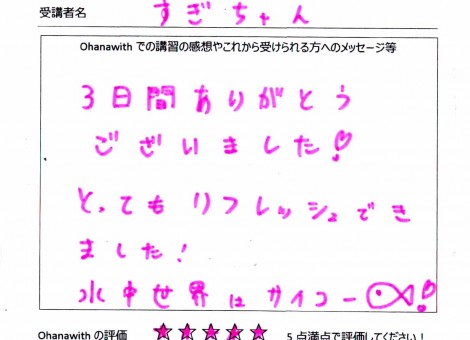 受講者名 すぎちゃん
Ohanawith での講習の感想やこれから受けられる方へのメッセージ等
3日間ありがとう
ございました!
とってもリフレッシュでき
ました!
水中世界はサイコー!
Ohanawith の評価 ★★★★★ 5点満点で評価してください!